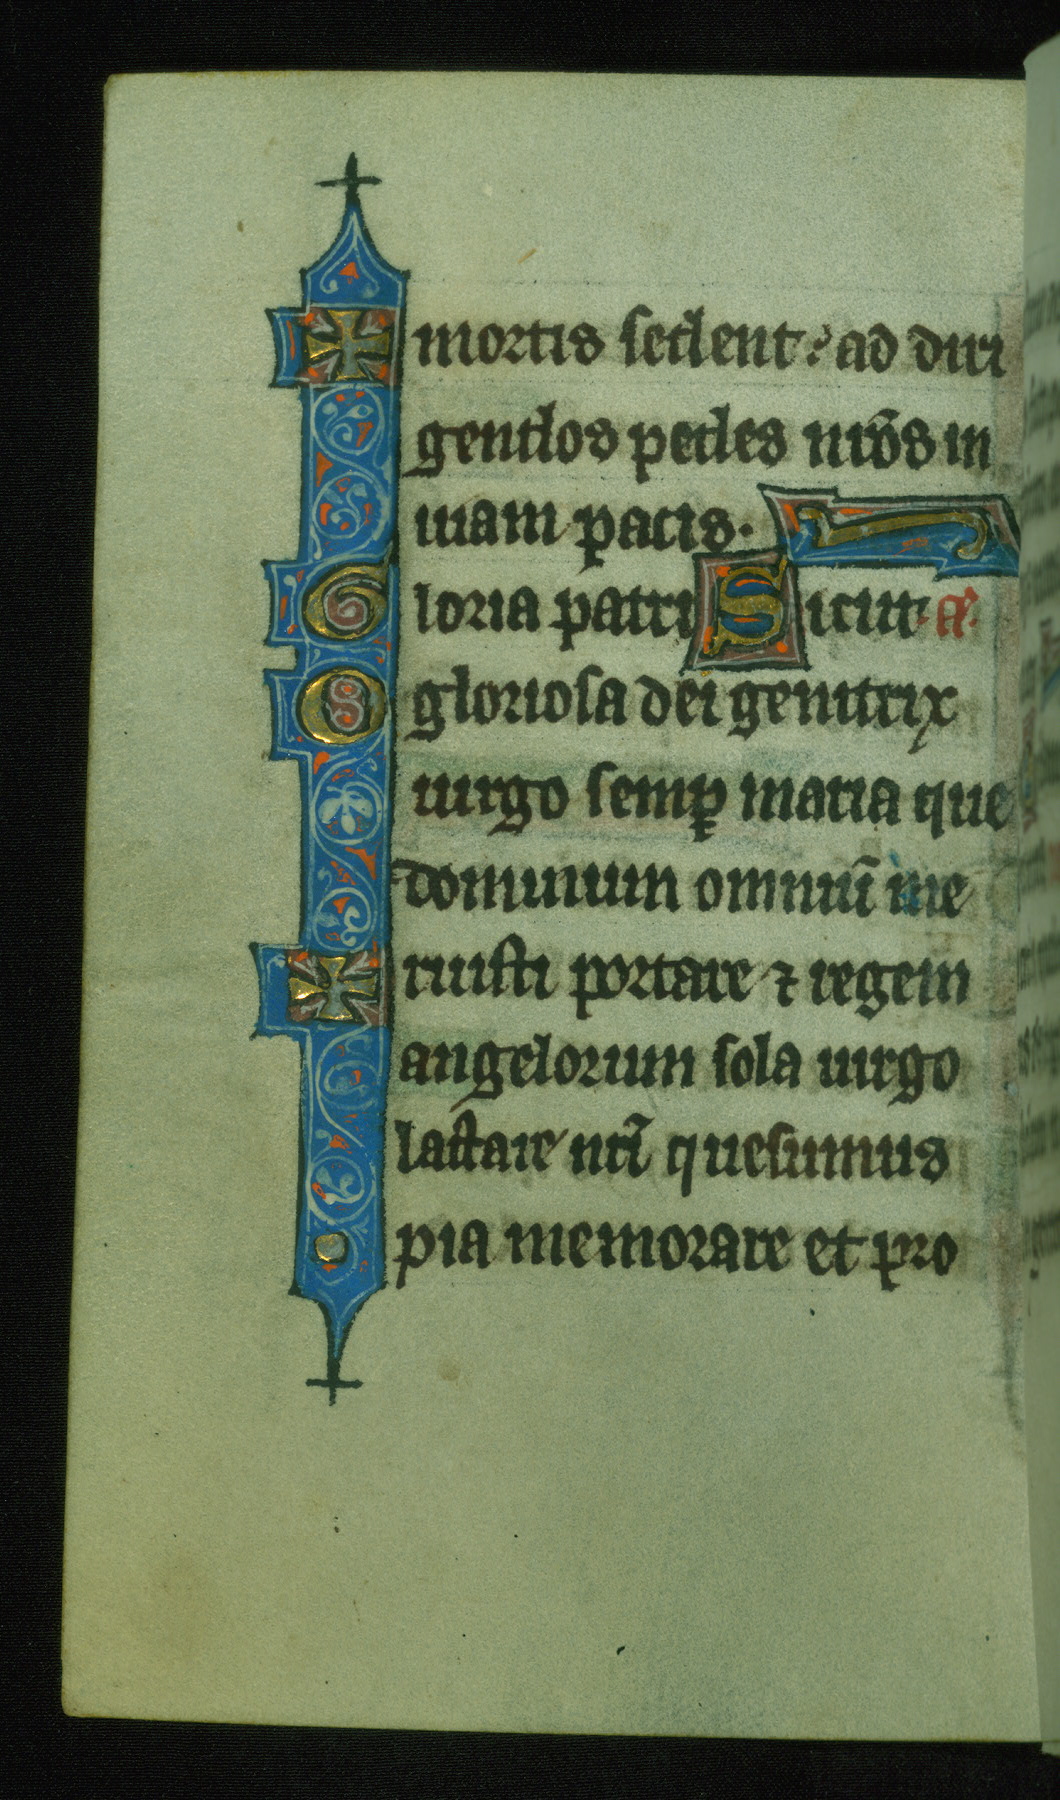 mortis sedent: ad diri
gendos pedes nr̄os in
uiam pacis.
Gloria patri Sicut. a͞.
O gloriosa dei genitrix
uirgo semꝑ maria que
dominum omniū me
ruisti portare ⁊ regem
angelorum sola uirgo
lactare nr̄i quesumus
pia memorare et pro